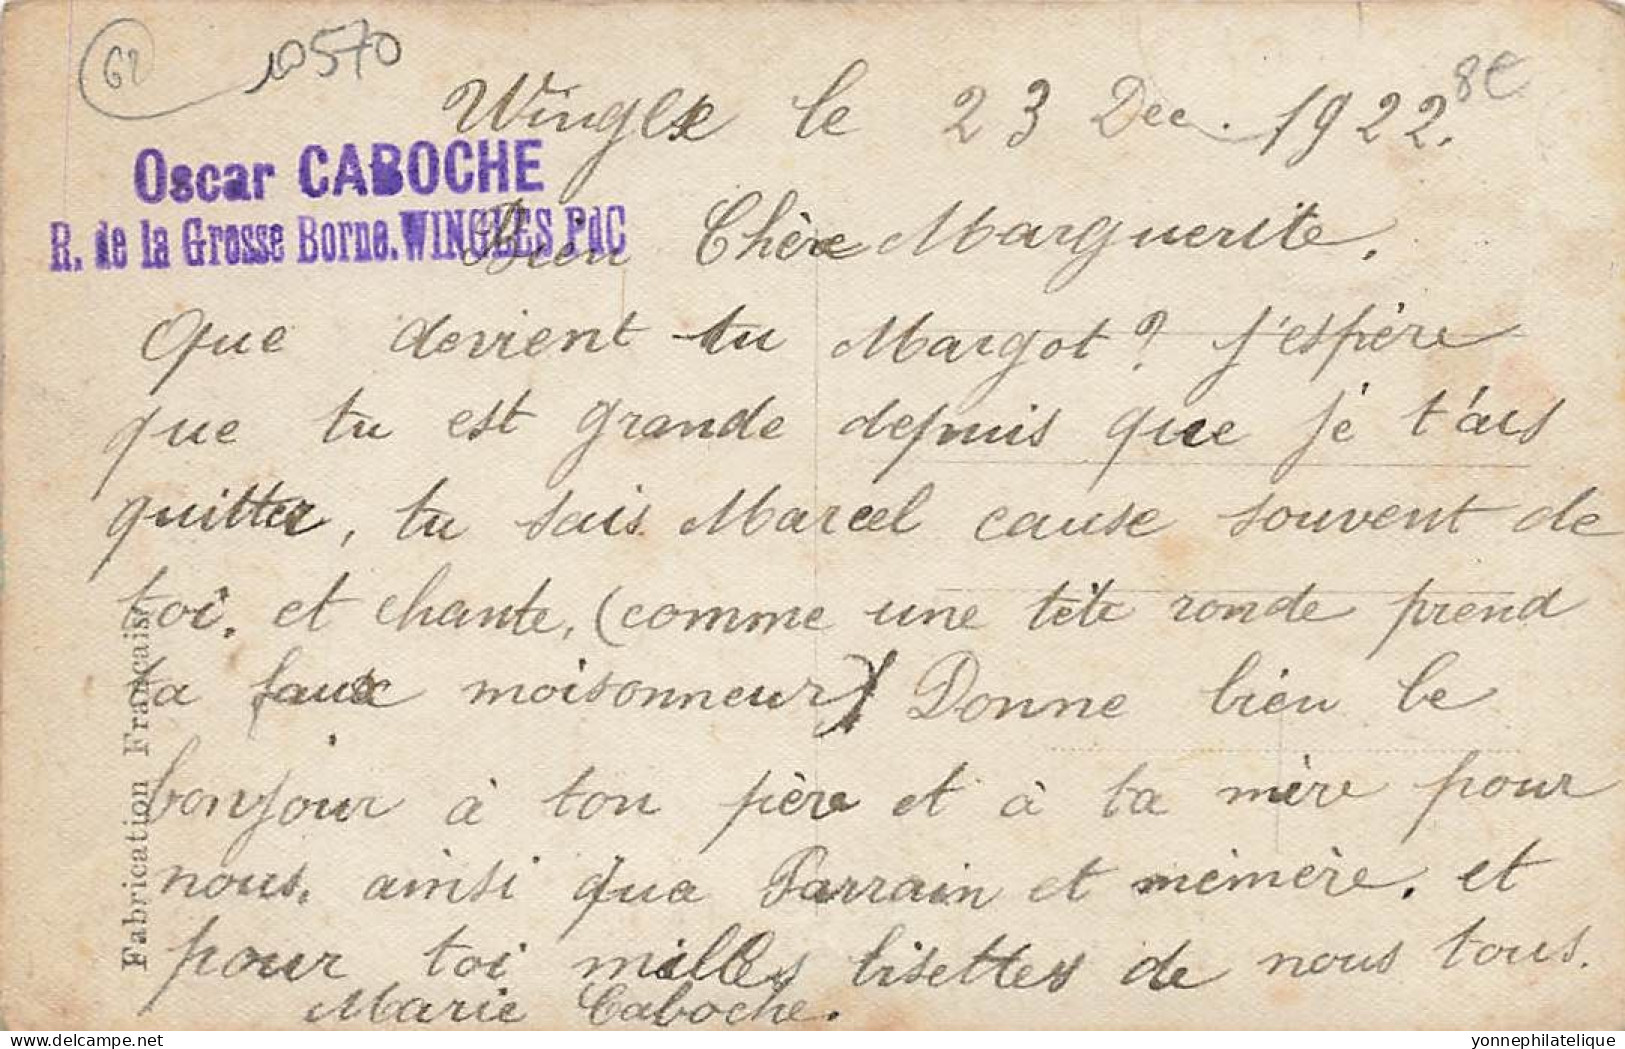 62
10570
8€
Wingles le 23 Dec. 1922.
Oscar CABOCHE
R. de la Grosse Borne. WINGLES PdC
Bien Chère Marguerite.
Que devient tu Margot? j'espère
que tu est grande depuis que je t'ais
quitter, tu sais Marcel cause souvent de
toi, et chante, (comme une tête ronde prend
ta faux moisonneur) Donne bien le
bonjour à ton père et à ta mère pour
nous, ainsi qua Parrain et mèmère, et
pour toi milles bisettes de nous tous.
Marie Caboche.
Fabrication Française
yonnephilatelique